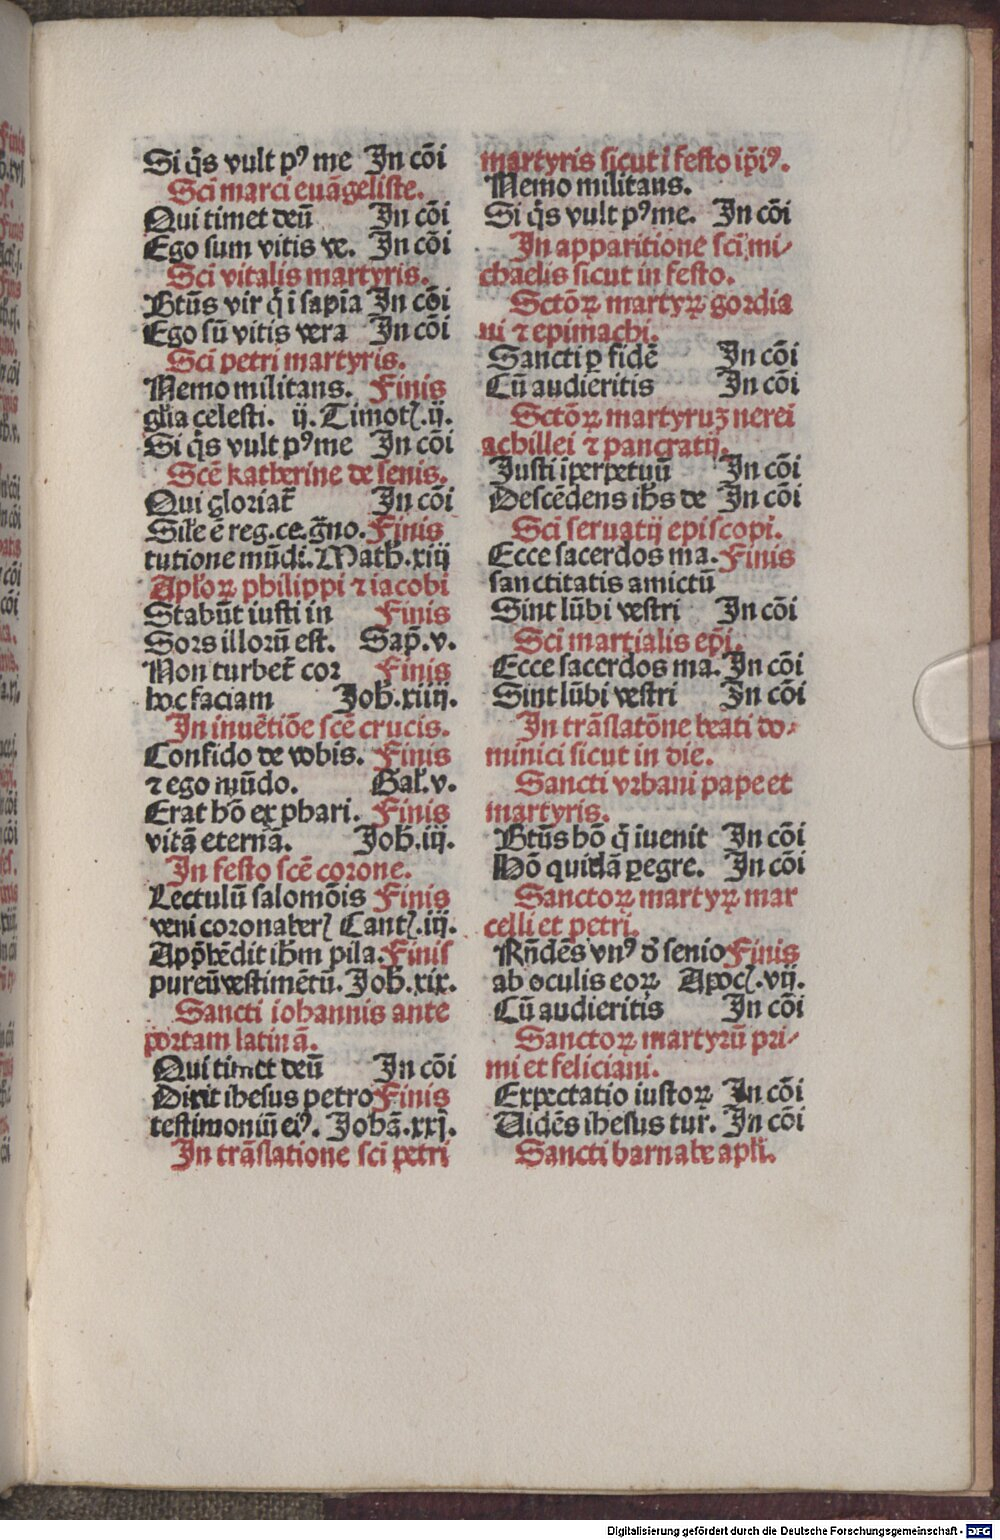 Si q̄s vult pꝰ me In cōi
Sci marci euāgeliste.
Qui timet deū In cōi
Ego sum vitis ve. In cōi
Sci vitalis martyris.
Btūs vir q̄ i sapīa In cōi
Ego sū vitis vera In cōi
Sci petri martyris.
Nemo militans. Finis
gl̄ia celesti. ij. Timotꝭ. ij.
Si q̄s vult pꝰ me In cōi
Scē katherine de senis.
Qui gloriat̄ In cōi
Sil̄e ē reg. ce. ḡno. Finis
tutione mūdi. Math̄. xiij
Apl̄oꝝ philippi ⁊ iacobi
Stabūt iusti in Finis
Sors illorū est. Sap̄. v.
Non turbet̄ cor Finis
hoc faciam Joh̄. xiiij.
In inuētiōe scē crucis.
Confido de vobis. Finis
⁊ ego mūdo. Gal̄. v.
Erat hō ex phari. Finis
vitā eternā. Joh̄. iij.
In festo scē corone.
Lectulū salomōis Finis
veni coronaberꝭ Cantꝭ. iij.
App̄hēdit ih̄m pila. Finis
pureū vestimētū. Joh̄. xix.
Sancti iohannis ante
portam latinā.
Qui timet deū In cōi
Dixit ihesus petro Finis
testimoniū eiꝰ. Johā. xxj.
In trāslatione sci petri
martyris sicut i festo ip̄iꝰ.
Nemo militans.
Si q̄s vult pꝰ me. In cōi
In apparitione sci mi⸗
chaelis sicut in festo.
Sctōꝝ martyꝝ gordia
ni ⁊ epimachi.
Sancti ꝑ fidē In cōi
Cū audieritis In cōi
Sctōꝝ martyruꝫ nerei
achillei ⁊ pancratij.
Justi iperpetuū In cōi
Descēdens ih̄s de In cōi
Sci seruatij episcopi.
Ecce sacerdos ma. Finis
sanctitatis amictū
Sint lūbi vestri In cōi
Sci martialis ep̄i.
Ecce sacerdos ma. In cōi
Sint lūbi vestri In cōi
In trāslatōne beati do⸗
minici sicut in die.
Sancti vrbani pape et
martyris.
Btūs hō q̄ iuenit In cōi
Hō quidā ꝑegre. In cōi
Sanctoꝝ martyꝝ mar
celli et petri.
Rn̄dēs vnꝰ d̄ senio Finis
ab oculis eoꝝ Apocꝭ. vij.
Cū audieritis In cōi
Sanctoꝝ martyrū pri⸗
mi et feliciani.
Expectatio iustoꝝ In cōi
Uidēs ihesus tur. In cōi
Sancti barnabe apl̄i.
Digitalisierung gefördert durch die Deutsche Forschungsgemeinschaft - DFG